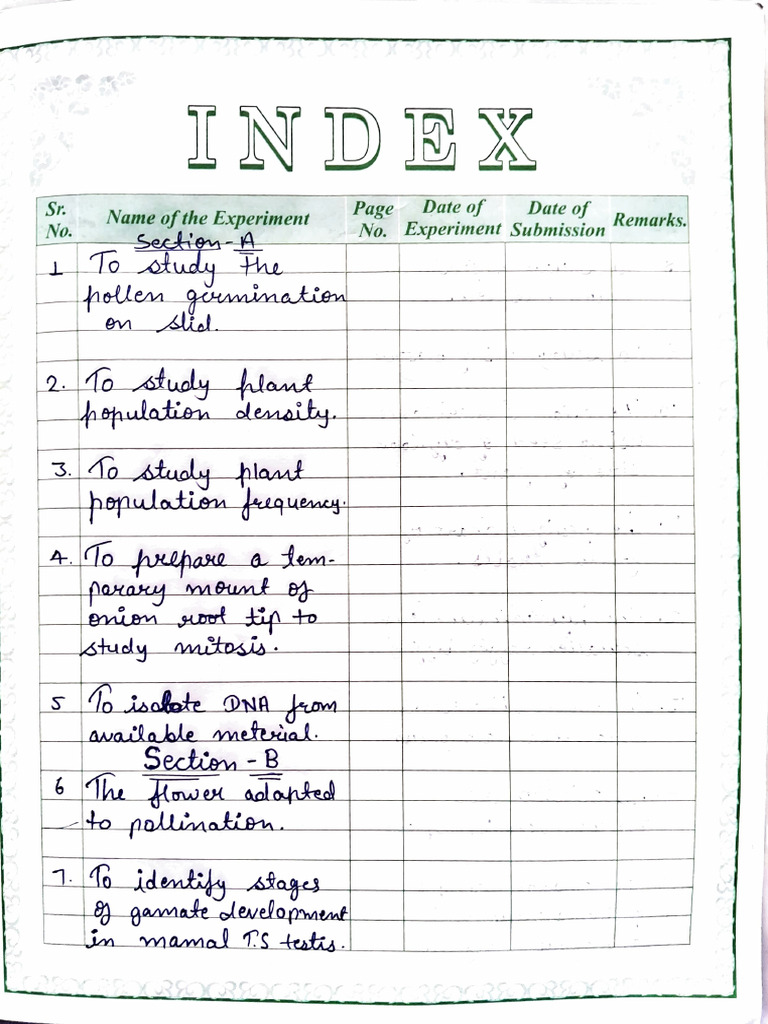 INDEX
Sr. No. Name of the Experiment Page No. Date of Experiment Date of Submission Remarks.
Section-A
1 To study the
pollen germination
on slid.
2. To study plant
population density.
3. To study plant
population frequency.
4. To prepare a tem-
parary mount of
onion root tip to
study mitosis.
5 To isolate DNA from
available meterial.
Section - B
6 The flower adapted
to pollination.
7. To identify stages
of gamate development
in mamal T.S testis.